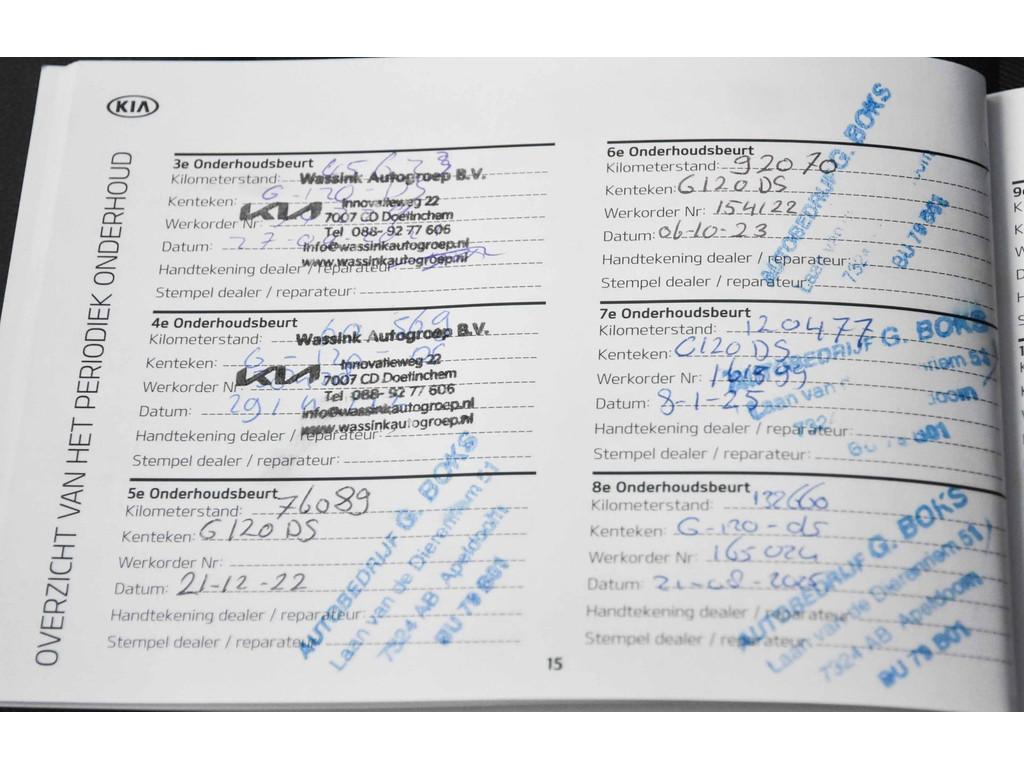 KIA
OVERZICHT VAN HET PERIODIEK ONDERHOUD
3e Onderhoudsbeurt
Kilometerstand:
Wassink Autogroep B.V.
Kenteken: G-120-DS
KIA
Innovatieweg 22
Werkorder Nr:
7007 CD Doetinchem
Tel 088-92 77 606
Datum:
info@wassinkautogroep.nl
www.wassinkautogroep.nl
Handtekening dealer / reparateur:
Stempel dealer / reparateur:
4e Onderhoudsbeurt
Kilometerstand: 60 569
Wassink Autogroep B.V.
Kenteken: G-120-DS
KIA
Innovatieweg 22
Werkorder Nr:
7007 CD Doetinchem
Tel 088-92 77 606
Datum:
info@wassinkautogroep.nl
www.wassinkautogroep.nl
Handtekening dealer / reparateur:
Stempel dealer / reparateur:
5e Onderhoudsbeurt
Kilometerstand: 76089
Kenteken: G120DS
Werkorder Nr:
Datum: 21-12-22
Handtekening dealer / reparateur:
Stempel dealer / reparateur:
AUTOBEDRIJF G. BOKS
Laan van de Dierenriem 51
7324 AB Apeldoorn
BU 79 B01
6e Onderhoudsbeurt
Kilometerstand: 92070
Kenteken: G120DS
Werkorder Nr: 154122
Datum: 06-10-23
Handtekening dealer / reparateur:
Stempel dealer / reparateur:
AUTOBEDRIJF G. BOKS
Laan van
7324
BU 79 B01
7e Onderhoudsbeurt
Kilometerstand: 120477
Kenteken: G120DS
Werkorder Nr: 161599
Datum: 8-1-25
Handtekening dealer / reparateur:
Stempel dealer / reparateur:
AUTOBEDRIJF G. BOKS
Laan van
BU 79 B01
8e Onderhoudsbeurt
Kilometerstand: 132660
Kenteken: G-120-ds
Werkorder Nr: 165024
Datum: 21-08-2025
Handtekening dealer / reparateur:
Stempel dealer / reparateur:
AUTOBEDRIJF G. BOKS
Laan van de Dierenriem 51
7324 AB Apeldoorn
BU 79 B01
15